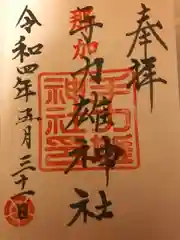 奉拝
那加
手力雄神社
手力雄
神社印
令和四年五月三十一日